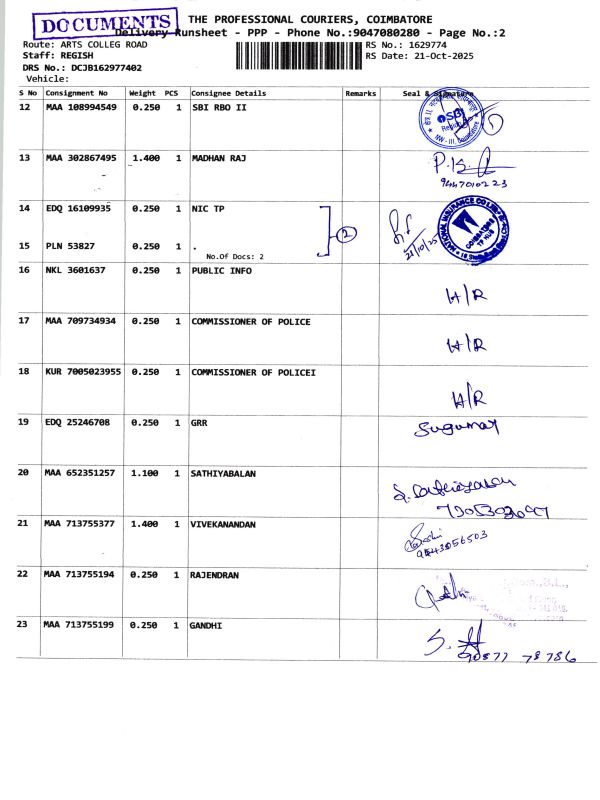 DOCUMENTS
THE PROFESSIONAL COURIERS, COIMBATORE
Delivery Runsheet - PPP - Phone No.:9047080280 - Page No.:2
Route: ARTS COLLEG ROAD
RS No.: 1629774
Staff: REGISH
RS Date: 21-Oct-2025
DRS No.: DCJB162977402
Vehicle:
S No Consignment No Weight PCS Consignee Details Remarks Seal & Signature
12 MAA 108994549 0.250 1 SBI RBO II
SBI
1
13 MAA 302867495 1.400 1 MADHAN RAJ
9447010223
14 EDQ 16109935 0.250 1 NIC TP
2
21/10/25
NATIONAL INSURANCE CO LTD
COIMBATORE
TP HUB
15 PLN 53827 0.250 1 .
No.Of Docs: 2
16 NKL 3601637 0.250 1 PUBLIC INFO
H/R
17 MAA 709734934 0.250 1 COMMISSIONER OF POLICE
H/R
18 KUR 7005023955 0.250 1 COMMISSIONER OF POLICEI
H/R
19 EDQ 25246708 0.250 1 GRR
Sugumar
20 MAA 652351257 1.100 1 SATHIYABALAN
21 MAA 713755377 1.400 1 VIVEKANANDAN
22 MAA 713755194 0.250 1 RAJENDRAN
23 MAA 713755199 0.250 1 GANDHI
90877 78786